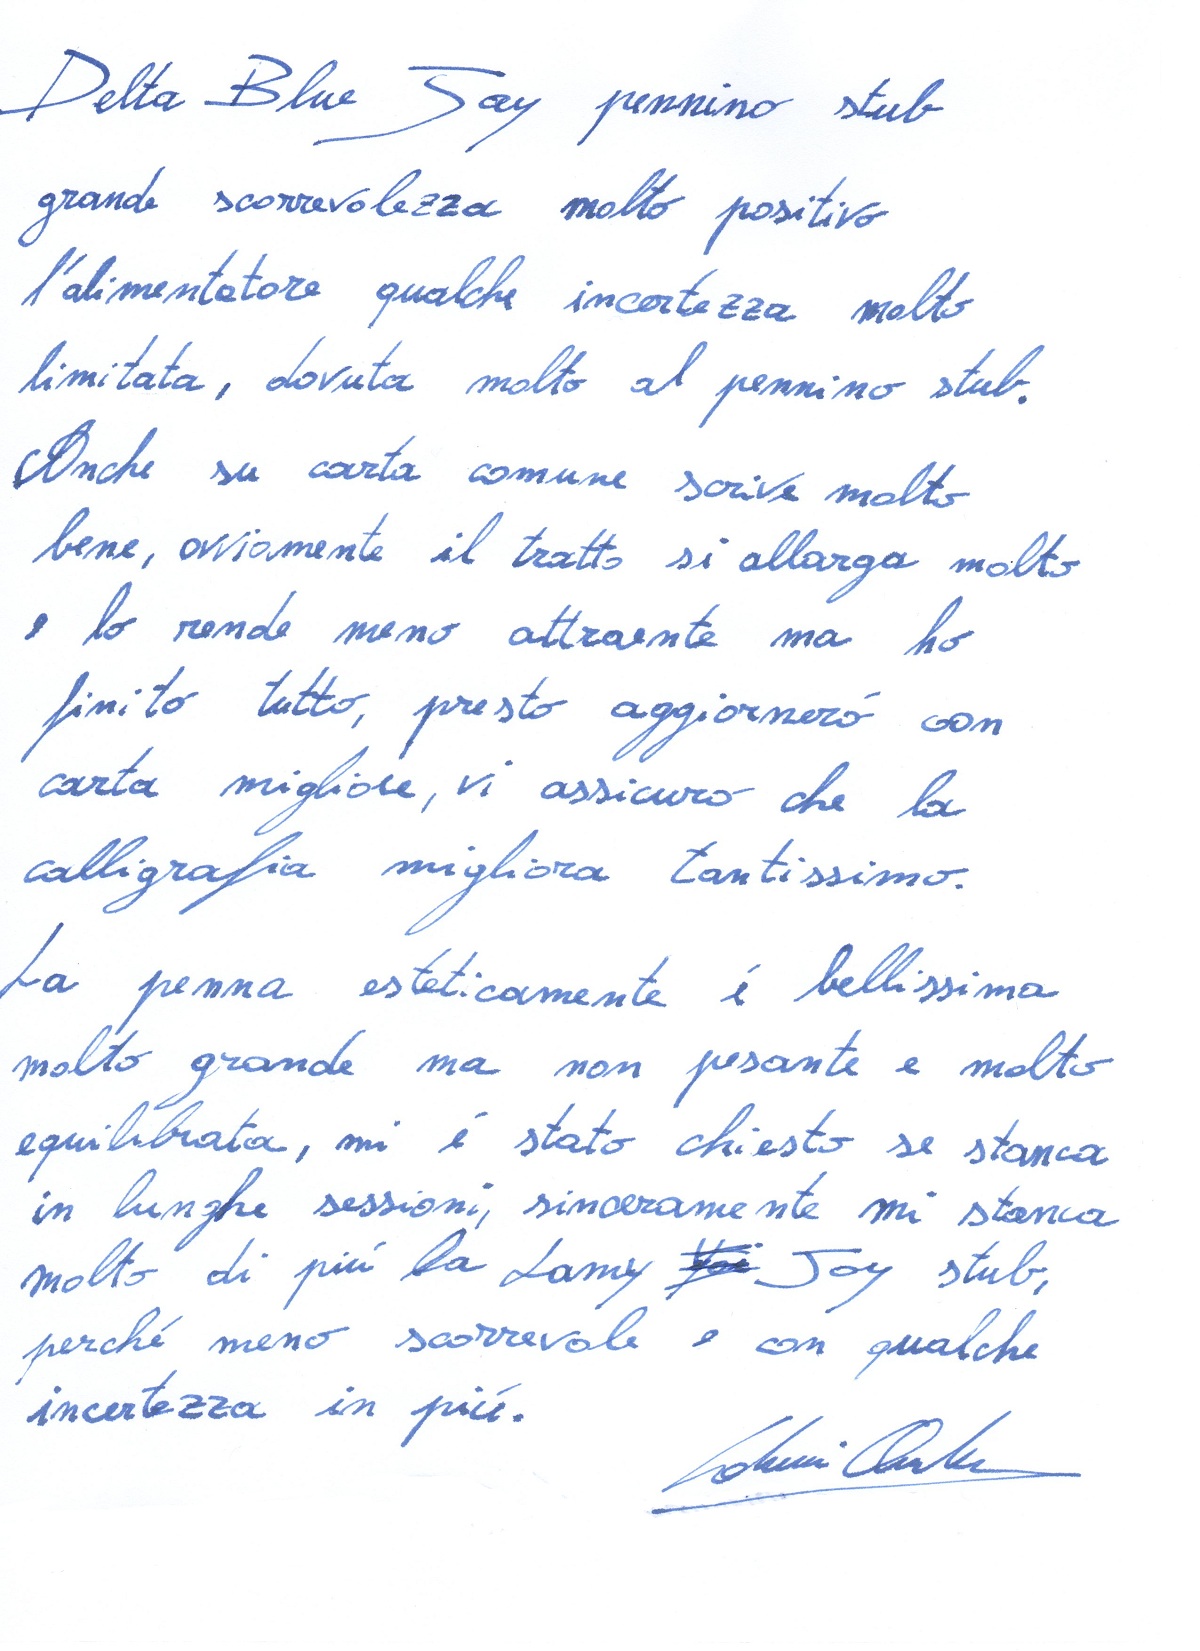 Delta Blue Jay pennino stub
grande scorrevolezza molto positivo
l'alimentatore qualche incertezza molto
limitata, dovuta molto al pennino stub.
Anche su carta comune scrive molto
bene, ovviamente il tratto si allarga molto
e lo rende meno attraente ma ho
finito tutto, presto aggiorneró con
carta migliore, vi assicuro che la
calligrafia migliora tantissimo.
La penna esteticamente é bellissima
molto grande ma non pesante e molto
equilibrata, mi é stato chiesto se stanca
in lunghe sessioni, sinceramente mi stanca
molto di piú la Lamy Joy stub,
perché meno scorrevole e con qualche
incertezza in piú.